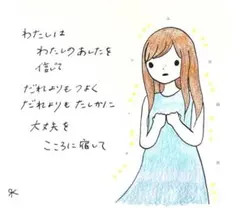 わたしは
わたしのあしたを
信じて
だれよりもつよく
だれよりもたしかに
大丈夫を
こころに宿して